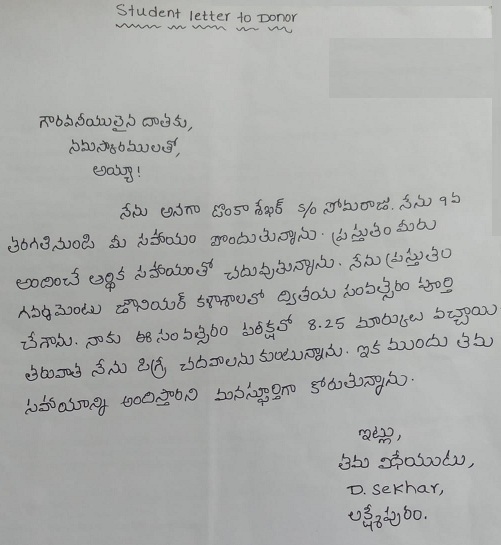 Student letter to Donor
గౌరవనీయులైన దాతకు,
నమస్కారములతో,
అయ్యా!
నేను అనగా డొంకా శేఖర్ S/o సోమరాజు. నేను 9వ
తరగతినుండి మీ సహాయం పొందుతున్నాను. ప్రస్తుతం మీరు
అందించే ఆర్థిక సహాయంతో చదువుతున్నాను. నేను ప్రస్తుతం
గవర్నమెంటు జూనియర్ కళాశాలలో ద్వితీయ సంవత్సరం పూర్తి
చేశాను. నాకు ఈ సంవత్సరం పరీక్షలో 8.25 మార్కులు వచ్చాయి
తరువాత నేను డిగ్రీ చదవాలనుకుంటున్నాను. ఇక ముందు తమ
సహాయాన్ని అందిస్తారని మనస్ఫూర్తిగా కోరుతున్నాను.
ఇట్లు,
తమ విధేయుడు,
D. Sekhar,
లక్ష్మీపురం.